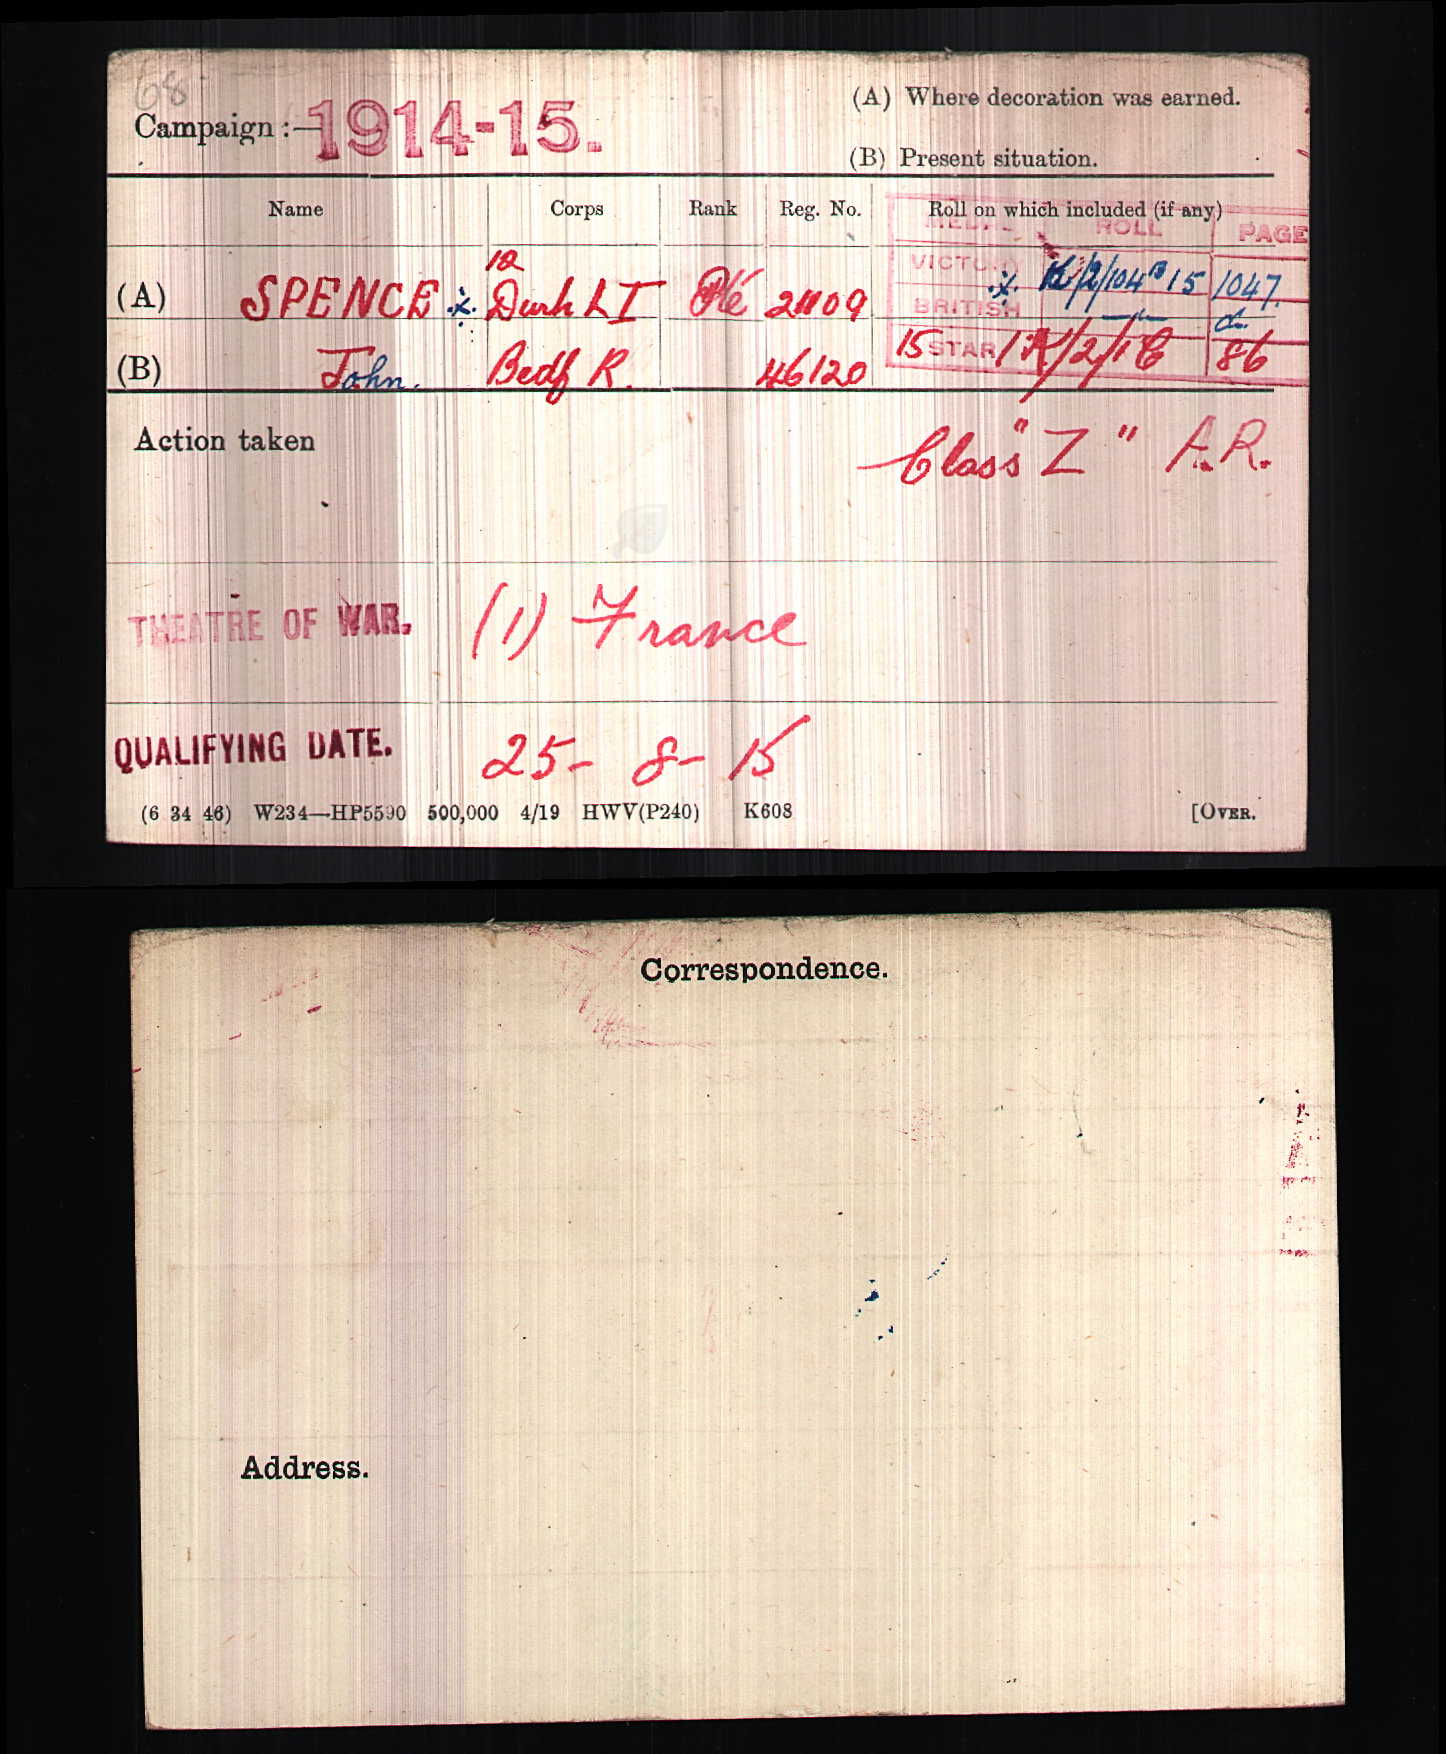 68
Campaign :— 1914-15.
(A) Where decoration was earned.
(B) Present situation.
Name Corps Rank Reg. No. Roll on which included (if any)
MEDAL ROLL PAGE
12
(A) SPENCE Durh L I Pte 21109 VICTORY K/2/104 B 15 1047.
BRITISH do.
(B) John. Bedf R. 46120 15 STAR K/2/1 C 86
Action taken
Class "Z" A.R.
THEATRE OF WAR. (1) France
QUALIFYING DATE. 25- 8- 15
(6 34 46) W234—HP5590 500,000 4/19 HWV(P240) K608 [OVER.
Correspondence.
Address.